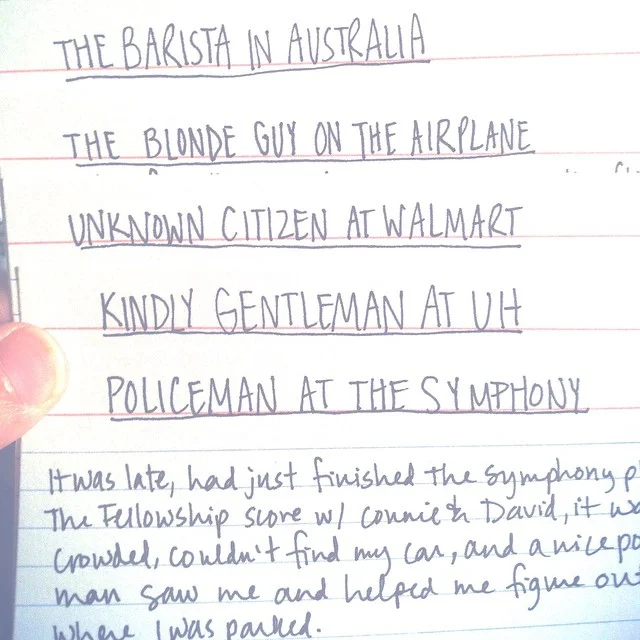 THE BARISTA IN AUSTRALIA
THE BLONDE GUY ON THE AIRPLANE
UNKNOWN CITIZEN AT WALMART
KINDLY GENTLEMAN AT UH
POLICEMAN AT THE SYMPHONY
It was late, had just finished the symphony p
The Fellowship score w/ Connie & David, it wa
crowded, couldn't find my car, and a nice po
man saw me and helped me figure out
where I was parked.